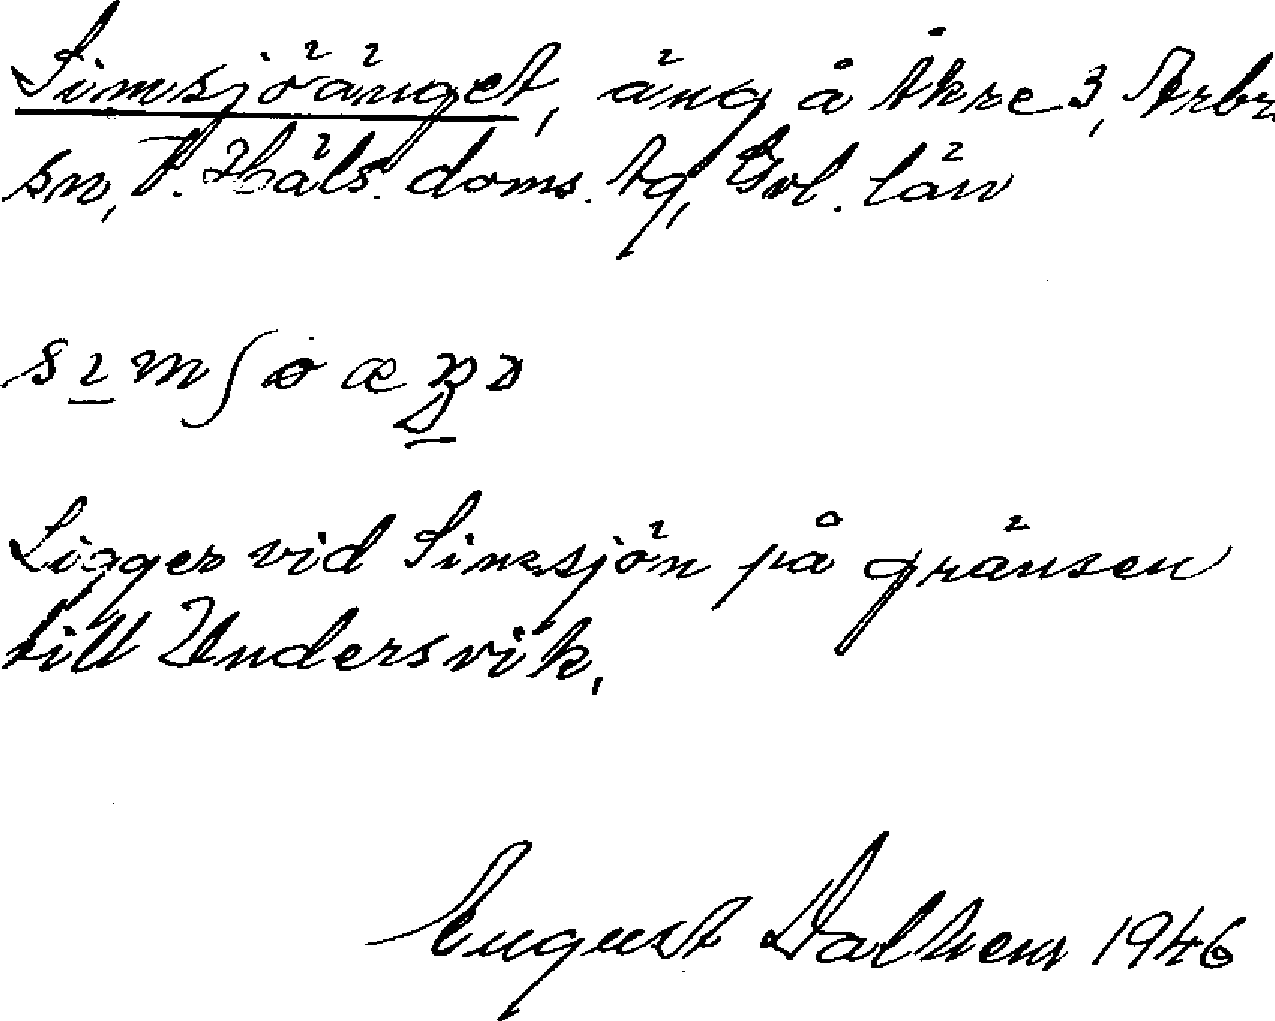 Simsjöänget, äng å Åkre 3, Arbr
sn, V. Häls. doms. tg, Gvl. län
Ligger vid Simsjön på gränsen
till Undersvik,
August Dalhem 1946